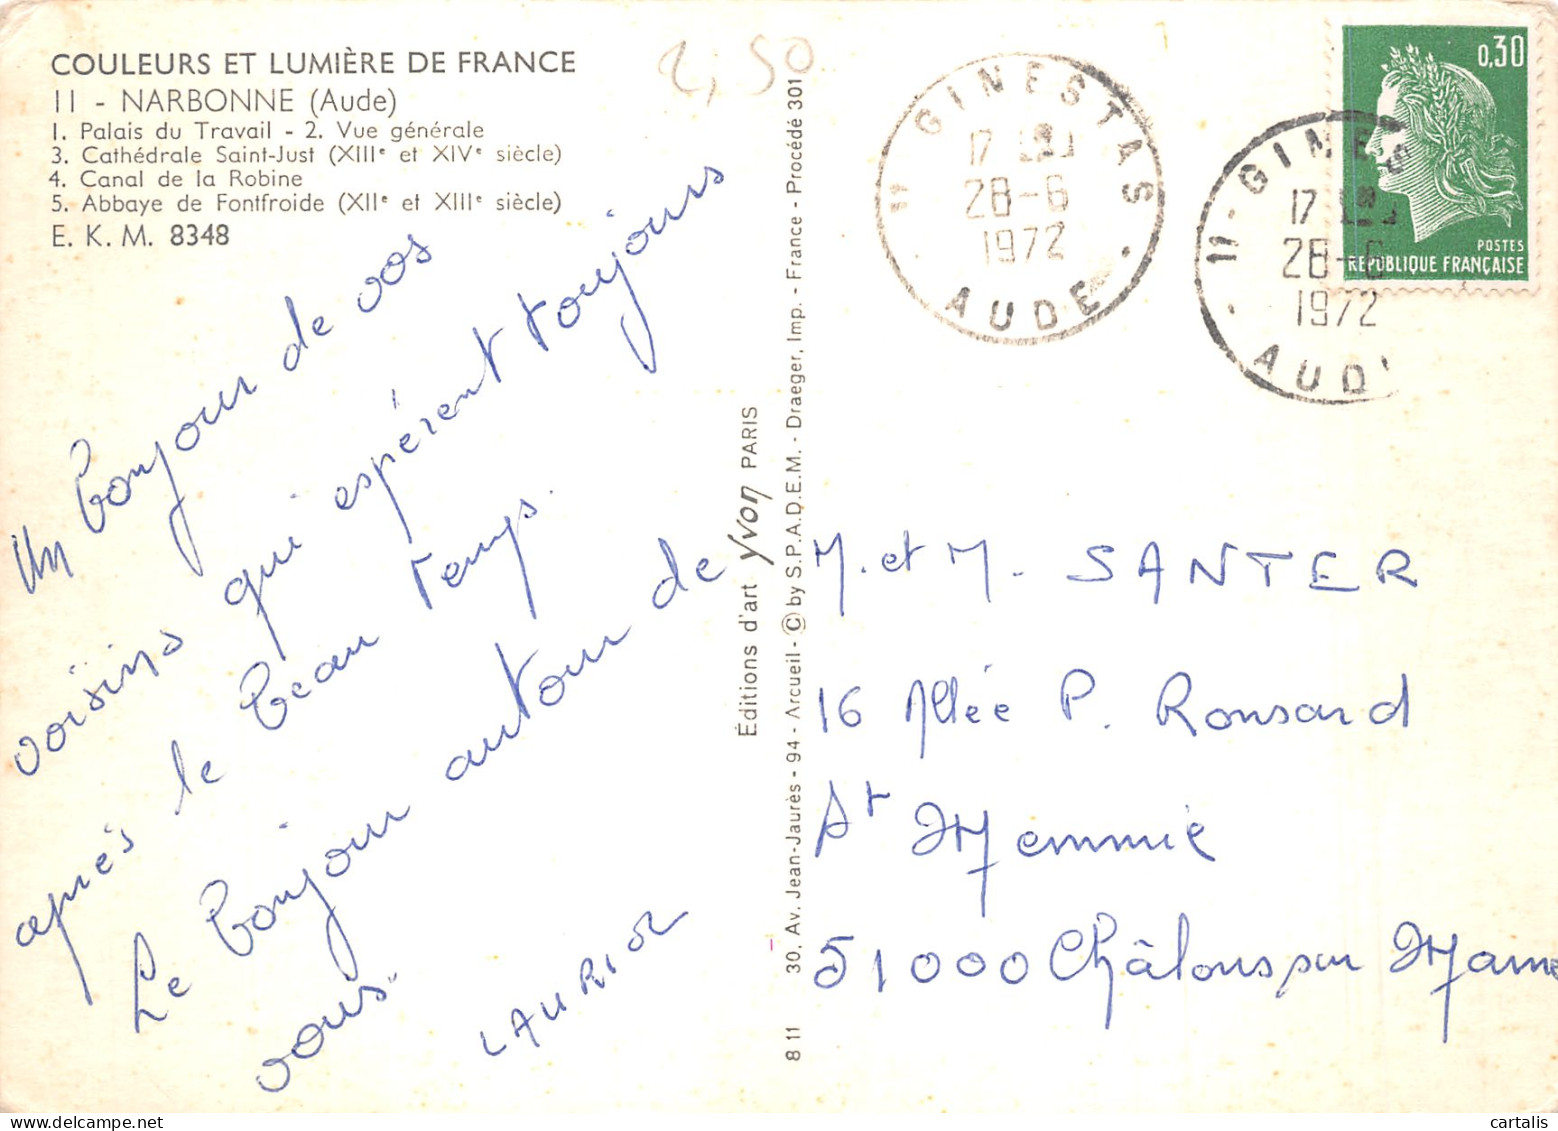 COULEURS ET LUMIÈRE DE FRANCE
11 - NARBONNE (Aude)
1. Palais du Travail - 2. Vue générale
3. Cathédrale Saint-Just (XIIIe et XIVe siècle)
4. Canal de la Robine
5. Abbaye de Fontfroide (XIIe et XIIIe siècle)
E. K. M. 8348
2,50
Un bonjour de vos
voisins qui espérent toujours
après le beau temps.
Le bonjour autour de
vous.
Éditions d'art yvon PARIS
30, Av. Jean-Jaurès - 94 - Arcueil - © by S.P.A.D.E.M. - Draeger, Imp. - France - Procédé 301
8 11
11 GINESTAS
17
28-6
1972
AUDE
11 - GINES
17
28-6
1972
AUD
0,30
POSTES
RÉPUBLIQUE FRANÇAISE
M. et M. SANTER
16 Allée P. Ronsard
St Memmie
51000 Châlons sur Marne
cartalis